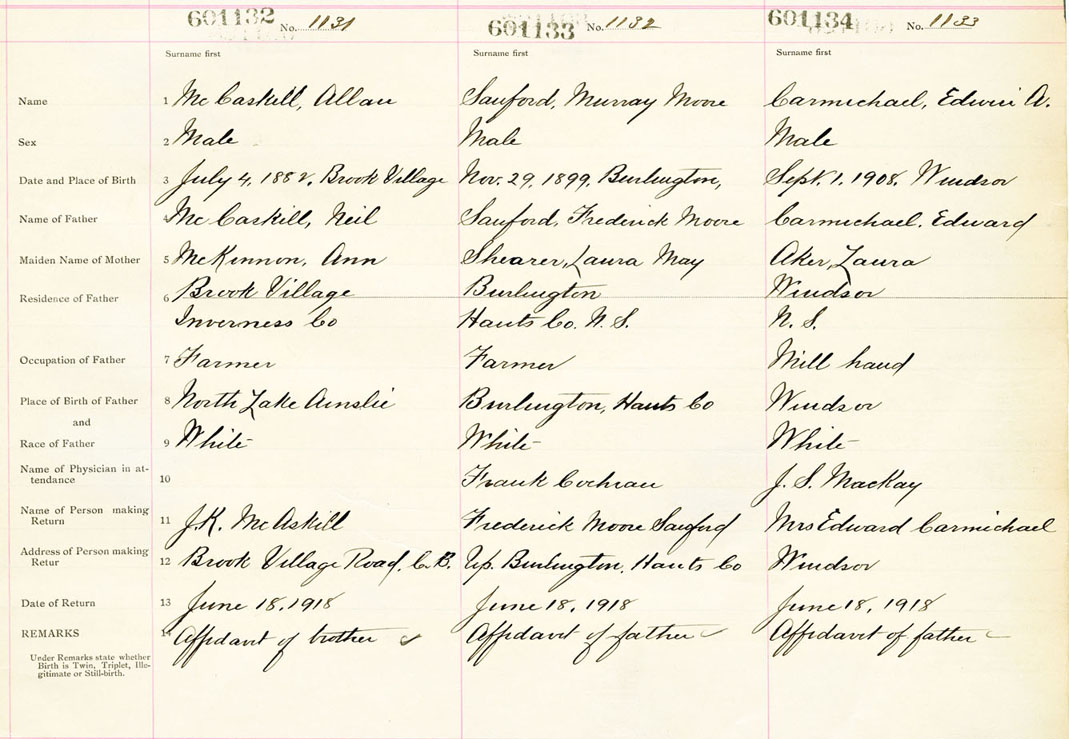 601132 No. 1131 601133 No. 1132 601134 No. 1133
Surname first Surname first Surname first
Name 1 McCaskill, Allan Sanford, Murray Moore Carmichael, Edwin A.
Sex 2 Male Male Male
Date and Place of Birth 3 July 4, 1882, Brook Village Nov. 29, 1899, Burlington, Sept. 1, 1908. Windsor
Name of Father 4 McCaskill, Neil Sanford, Frederick Moore Carmichael, Edward
Maiden Name of Mother 5 McKinnon, Ann Shearer, Laura May Aker, Laura
Residence of Father 6 Brook Village Burlington Windsor
Inverness Co Hants Co. N. S. N. S.
Occupation of Father 7 Farmer Farmer Mill hand
Place of Birth of Father 8 North Lake Ainslie Burlington, Hants Co Windsor
and
Race of Father 9 White White White
Name of Physician in at-
tendance 10 Frank Cochran J. S. MacKay
Name of Person making
Return 11 J.K. McAskill Frederick Moore Sanford Mrs Edward Carmichael
Address of Person making
Retur 12 Brook Village Road, C.B. Up. Burlington, Hants Co Windsor
Date of Return 13 June 18, 1918 June 18, 1918 June 18, 1918
REMARKS 14 Affidavit of brother ✓ Affidavit of father ✓ Affidavit of father ✓
Under Remarks state whether
Birth is Twin, Triplet, Ille-
gitimate or Still-birth.